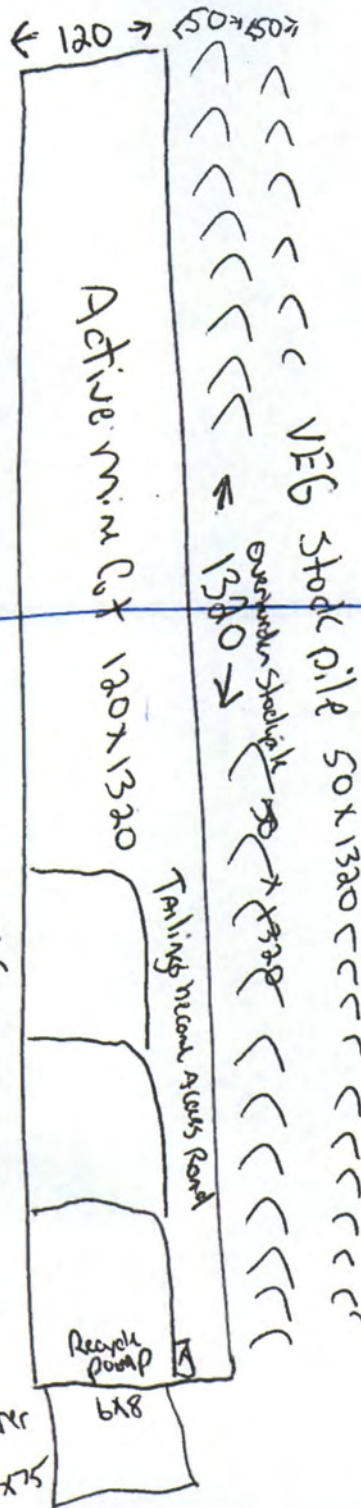 120
50
50
VEG Stock pile 50 x 1320
1320
Overburden Stockpile 50 x 1320
Active Mine Cut 120x1320
Tailings Access Road
Recycle
pump
6x8
x75